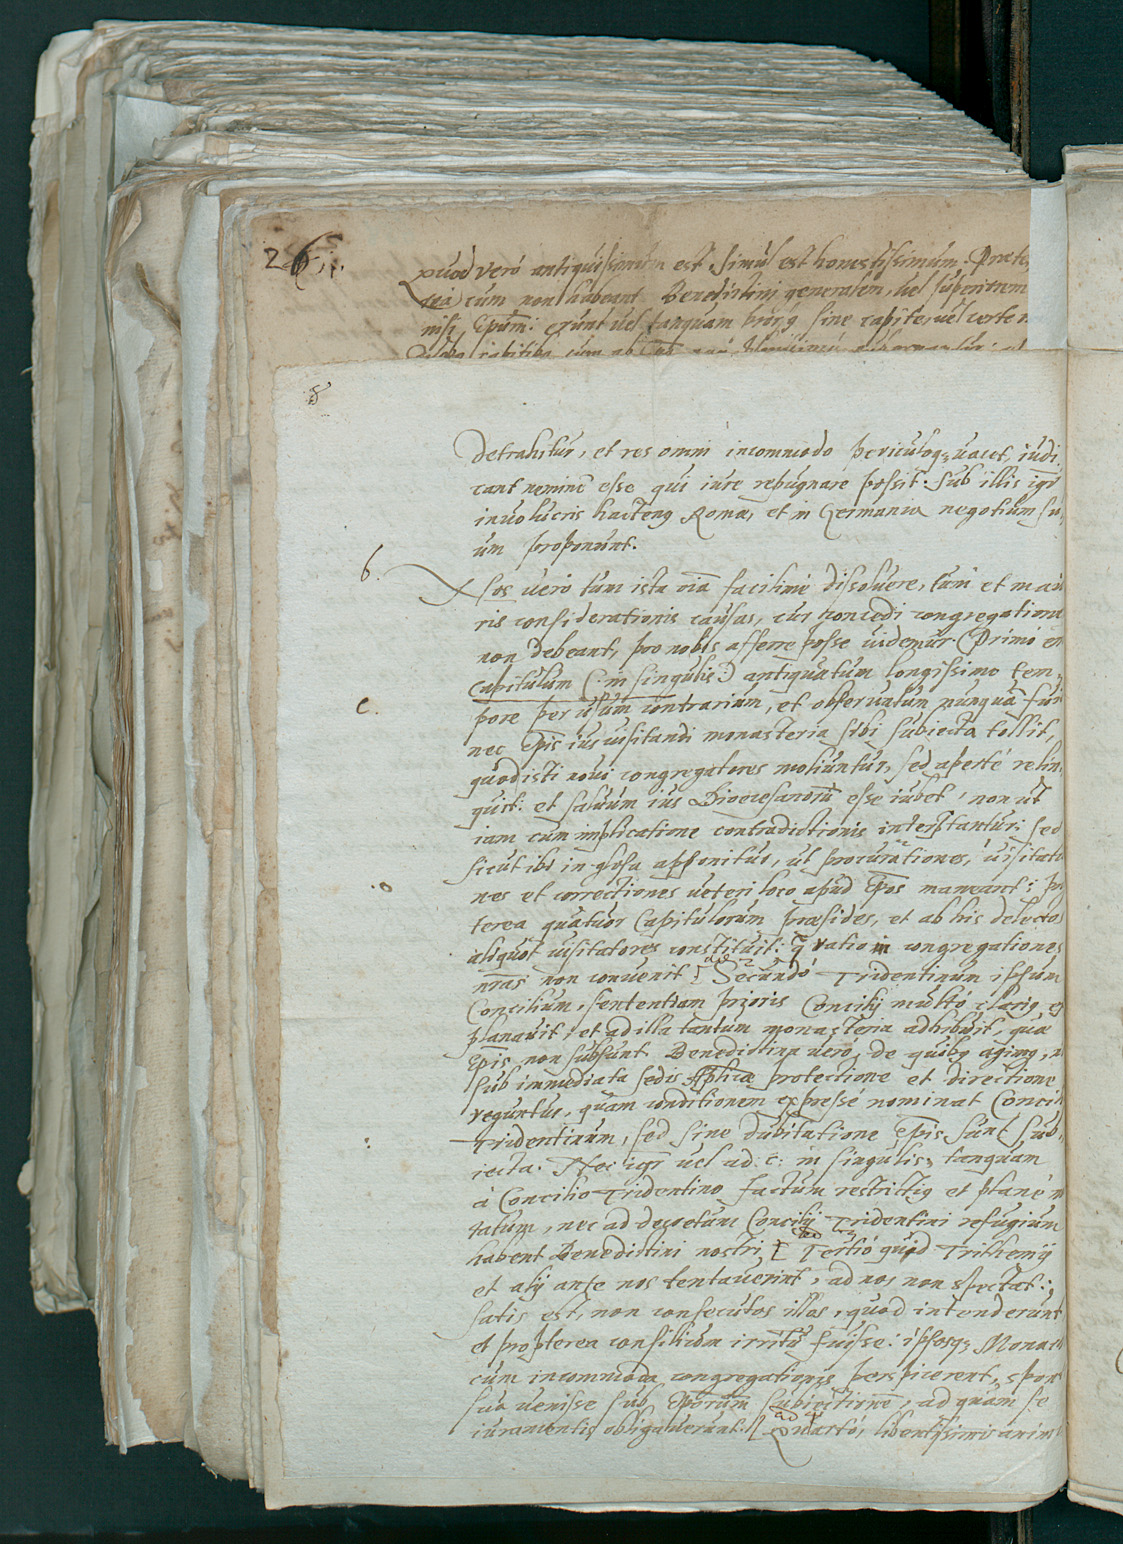 26.
Quod verò antiquissimum est, simul est honestissimum. Præte,
rea cum non habeant Benedictini generalem, vel superiorem
nisi Epūm: erunt vel tanquam corpq sine capite, vel certe
8
detrahitur, et res omni incommodo periculoq; vacet, iudi
cant neminē esse qui iure repugnare possit. Sub illis igr̄
involucris hactenq Romæ, et in Germania negotium su,
um proponunt.
b.
Nos verò tum ista oīa facilimè dissolvere, tum et maio
ris considerationis causas, cur concedi congregationes
non debeant, pro nobis afferre posse videmur. Primò en
Capitulum (: in singulis :) antiquatum longissimo tem,
c.
pore per usum contrarium, et observatum nunquā fuit
nec Epis ius visitandi monasteria sibi subiecta tollit,
quod isti novi congregatores moliuntur, sed apertè relin,
quit: et salvum ius Dioecesanorū esse iubet, non ut
iam cum implicatione contradictionis interptantur; sed
sicut ibi in glosa apponitur, ut procurationes, visitatio
nes et correctiones veteri loco apud Epos maneant; pr
terea quatuor Capitulorum præsides, et ab his delectos
aliquot visitatores constituit: q̄ ratio in congregationes
nr̄as non convenit. [ad 2] Secundò Tridentinum ipsum
Concilium, sententiam prioris Concilij multò clariq ex
planavit, et ad illa tantum monasteria adhibuit, quæ
Epis non subsunt. Benedictina verò, de quibq agimq, n
sub immediata sedis Aplicæ protectione et directione
reguntur, quam conditionem expressè nominat Concil
Tridentinum, sed sine dubitatione Epis sunt sub,
iecta. Nec igr̄ vel ad c: in singulis, tanquam
à Concilio Tridentino factum restrictiq et planè m
tatum, nec ad decretum Concilij Tridentini refugium
habent Benedictini nostri, [ad 3] Tertiò quod Trithemij
et alij ante nos tentaverint, ad nos non spectat:
satis est, non consecutos illos, quod intenderunt
et propterea consilium irritū fuisse: ipsosq; Monach
cum incommoda congregationis perspicerent, spon
sua venisse sub Eporum subiectionē, ad quam se
iuramentis obligaverunt. [ad 4] Quartò, libentissimis anim